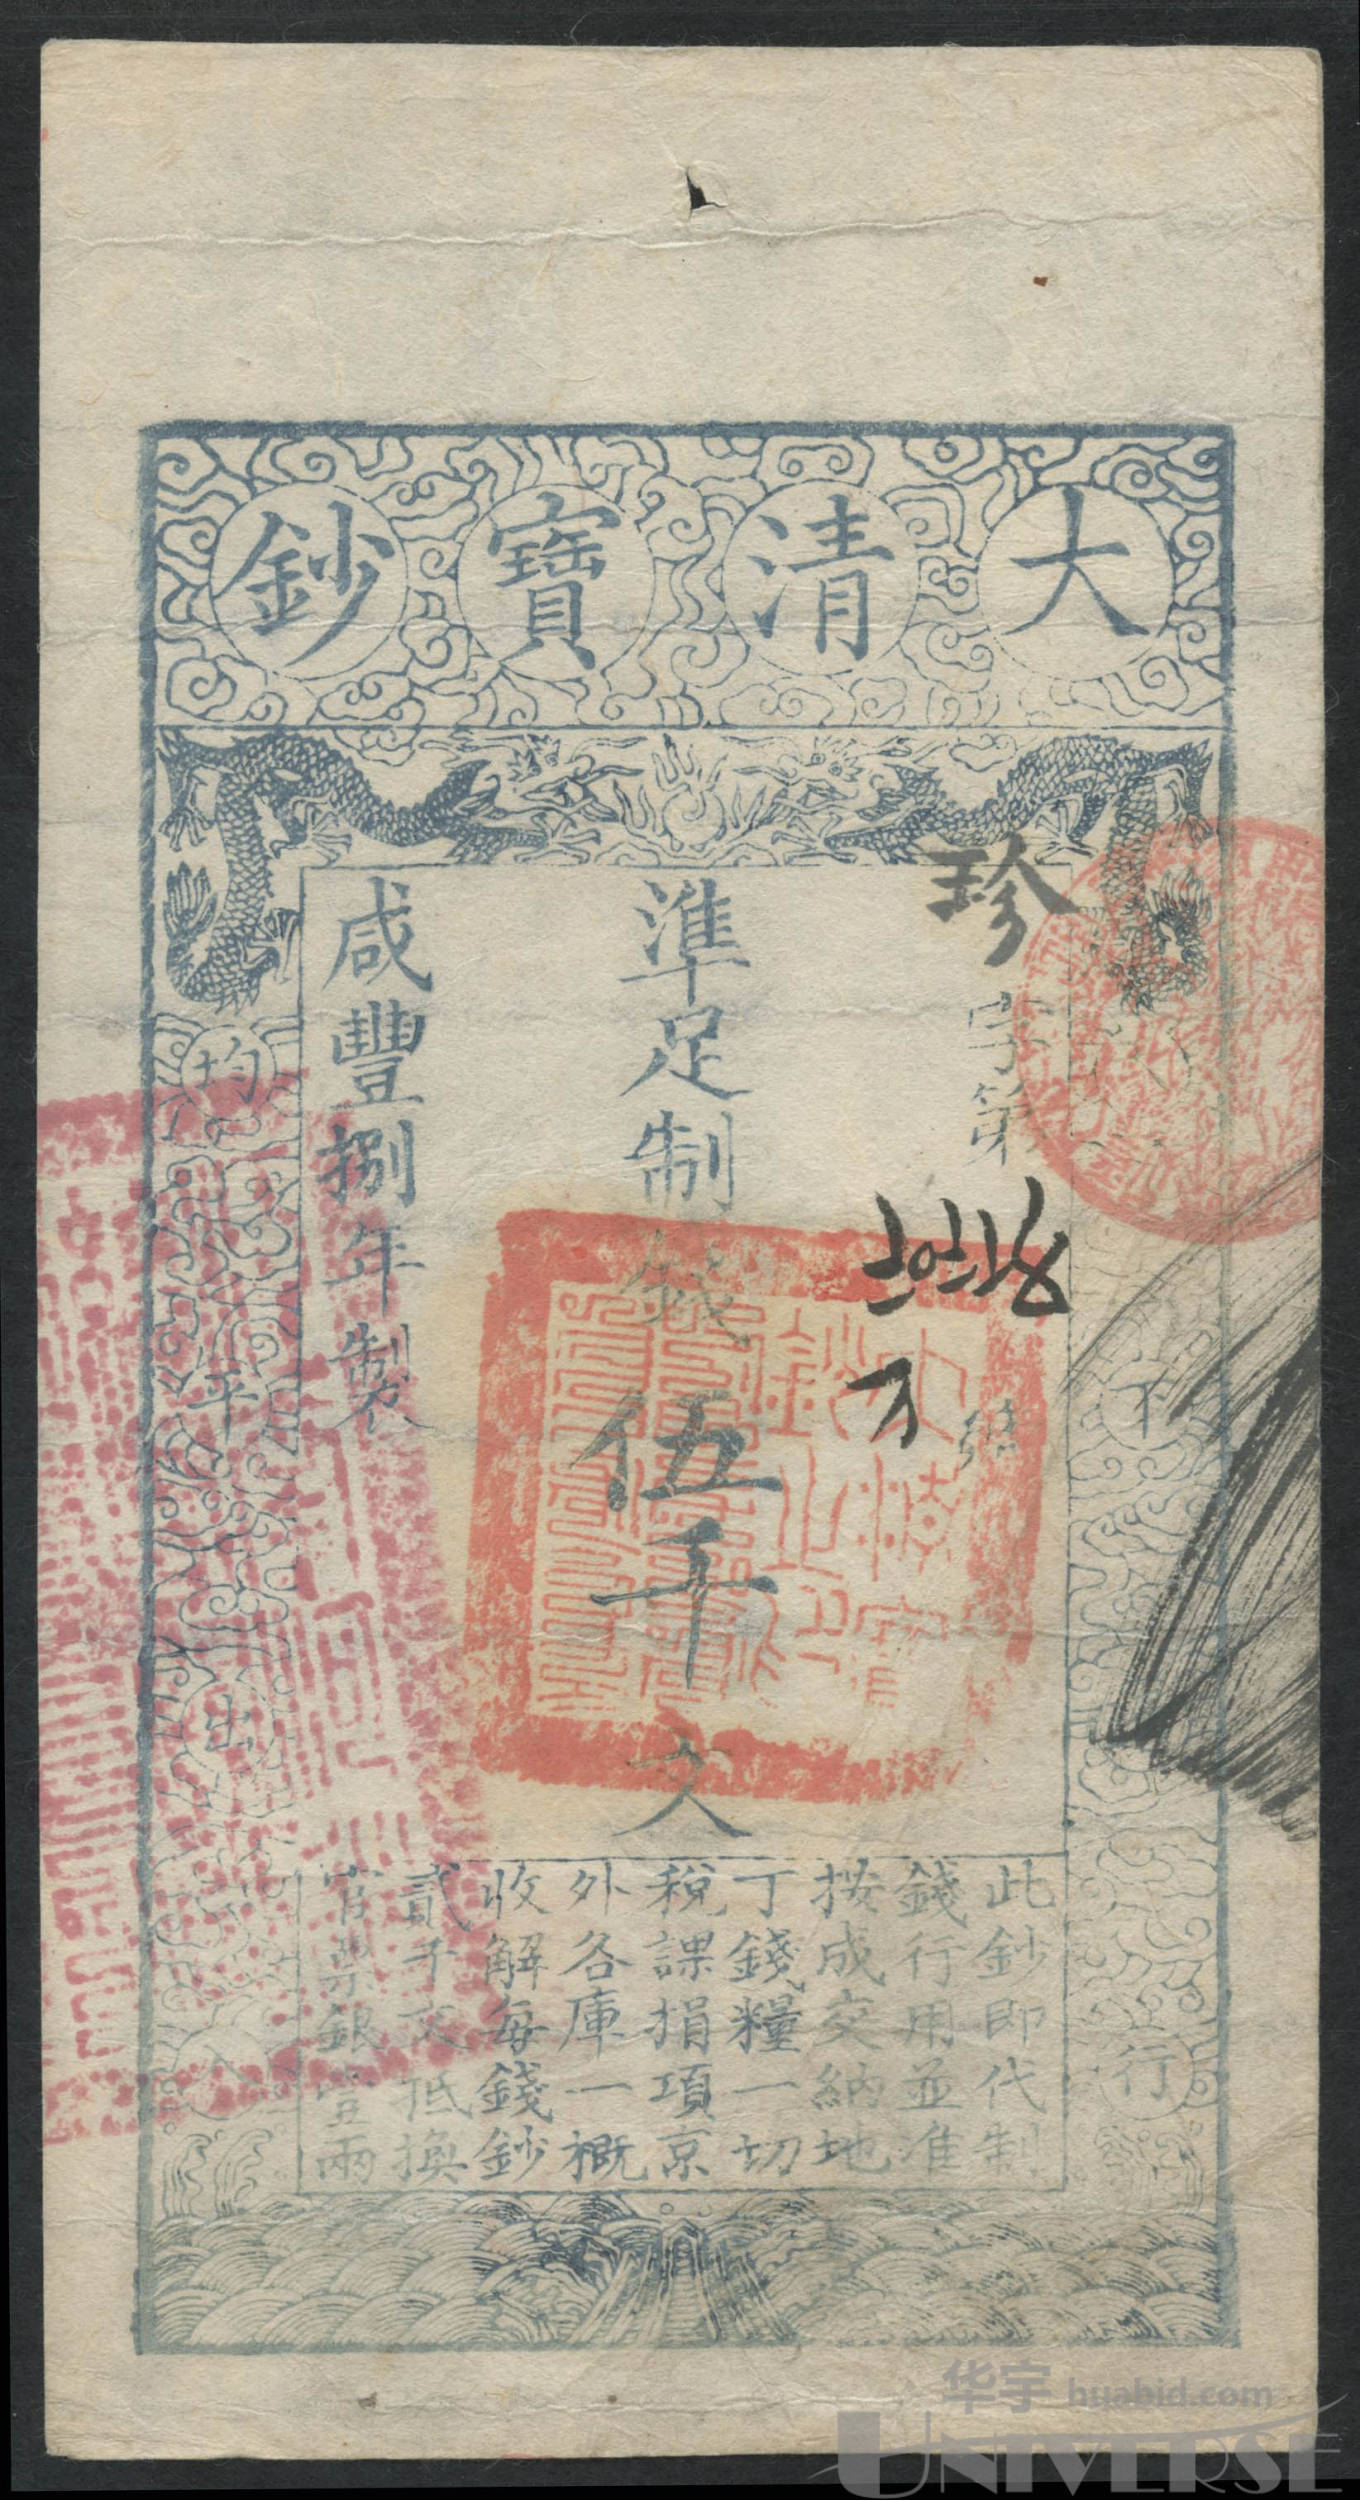 大清寶鈔
天下
珍
字第
號
準足制錢伍千文
咸豐捌年製
均平出入
行
此鈔即代制
錢行用並准
按成交納地
丁錢糧一切
稅課捐項京
外各庫一概
收解每錢鈔
貳千文抵換
官票銀壹兩
大清寶鈔之印
华宇 huabid.com
UNIVERSE